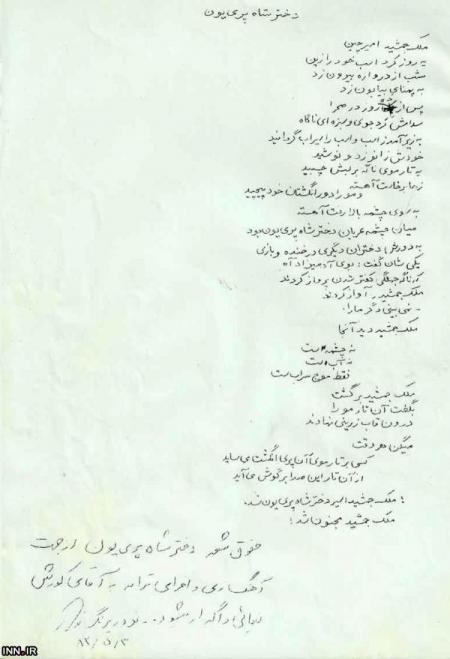 دختر شاه پریون
ملک جمشید امیر چین
یه روز کرد اسب خود را زین
شب از دروازه بیرون زد
به پهنای بیابون زد
پس از روز در صحرا
سر راهش جوی و سبزه ای ناگاه
به زیر آمد ز اسب و اسب را سیراب گردانید
خودش زانو زد و نوشید
یه تار موی ناگه بر لبش چسبید
ز جا برخاست آهسته
و مو را دور انگشتان خود پیچید
به سوی چشمه بالا رفت آهسته
میان چشمه عریان دختر شاه پریون بود
به دورش دختران دیگری در خنده و بازی
یکی شان گفت: بوی آدمیزاد آه
که ناگه جملگی کفتر شدن پرواز کردند
ملک جمشید آواز کردند
- نمی بینی دگر ما را.
ملک جمشید دید آنجا
نه چشمه است
نه آب است
فقط موج سراب است
ملک جمشید برگشت
بگفت آن تار مو را
درون قاب زرینی نهادند
میگن هر وقت
کسی بر تار موی آن پری انگشت می ساید
از آن تار این صدا بر گوش می آید
: ملک جمشید اسیر دختر شاه پریون شد.
ملک جمشید مجنون شد!
حقوق شعر دختر شاه پریون از جهت
آهنگسازی و اجرای ترانه به آقای کورش
یغمائی واگذار میشود. - نوذر پرنگ
INN.IR